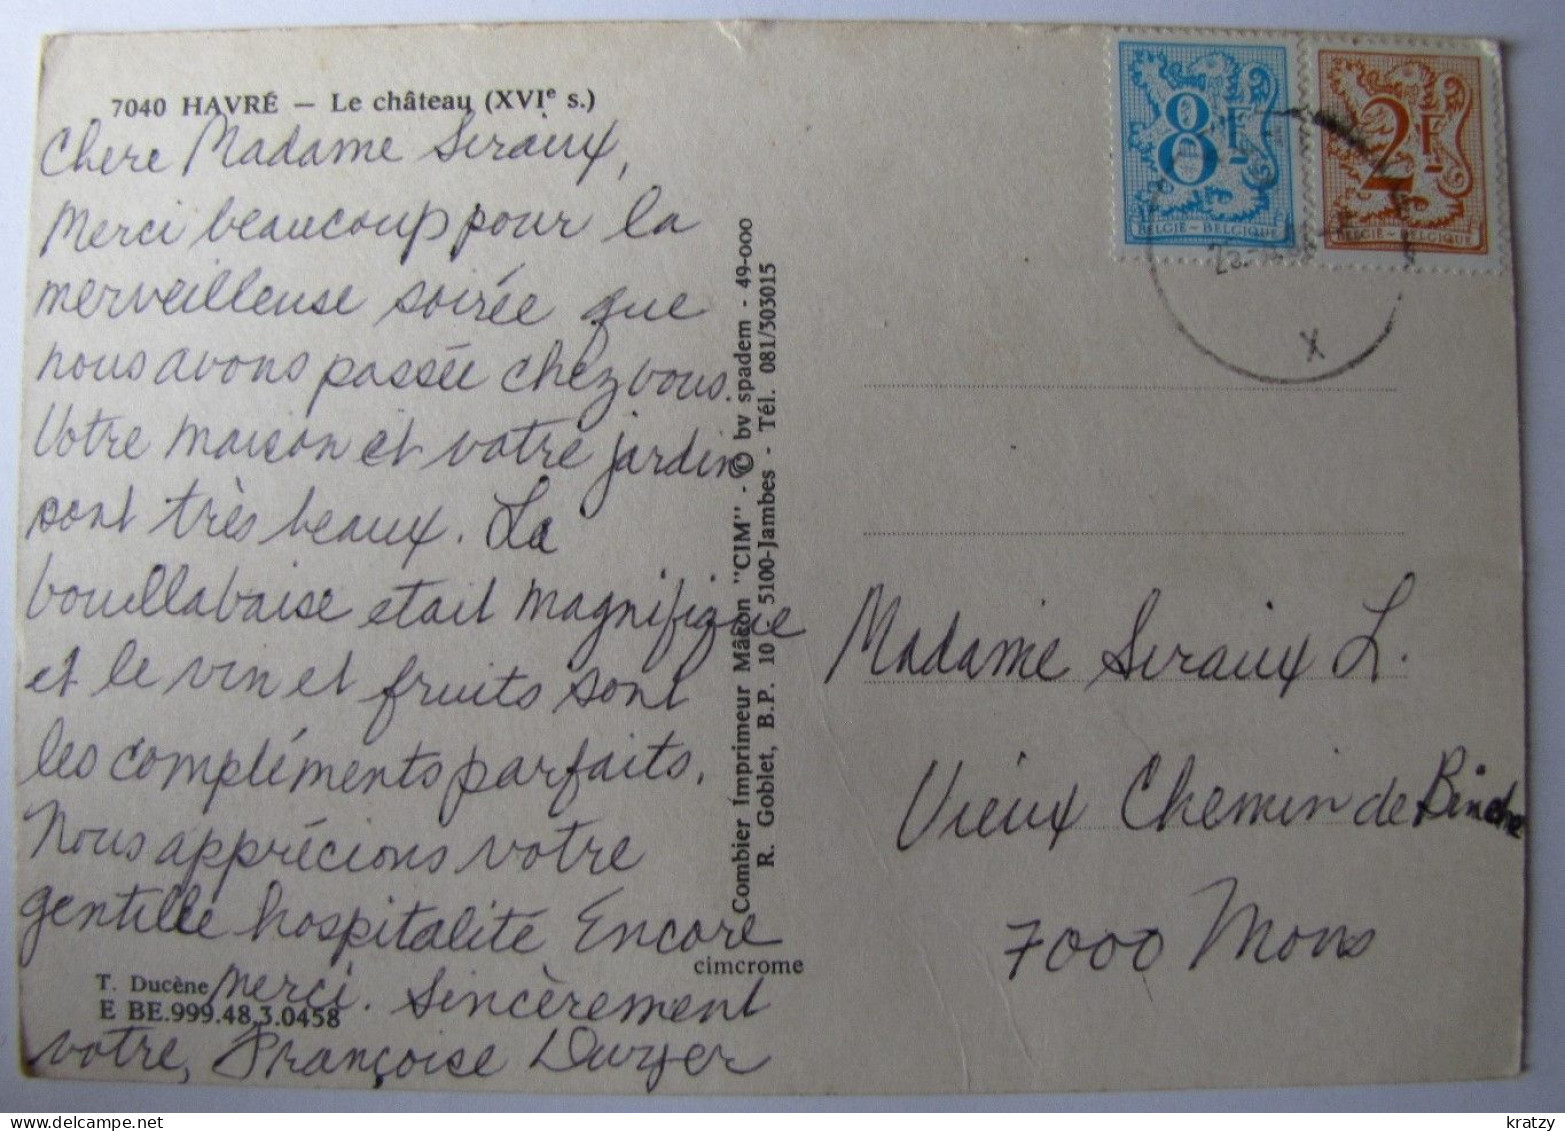 7040 HAVRÉ — Le château (XVIe s.)
Chere Madame Siraux,
Merci beaucoup pour la
merveilleuse soirée que
nous avons passée chez vous.
Votre maison et votre jardin
sont très beaux. La
bouillabaise etait magnifique
et le vin et fruits sont
les compléments parfaits.
Nous apprécions votre
gentille hospitalité Encore
merci. Sincèrement
votre, Françoise Dwyer
T. Ducène
E BE.999.48.3.0458
cimcrome
Combier Imprimeur Mâcon "CIM" - © by spadem - 49-000
R. Goblet, B.P. 10 - 5100-Jambes - Tél. 081/303015
8F
BELGIË - BELGIQUE
2F
BELGIË - BELGIQUE
X
Madame Siraux L.
Vieux Chemin de Binche
7000 Mons
delcampe.net
kratzy